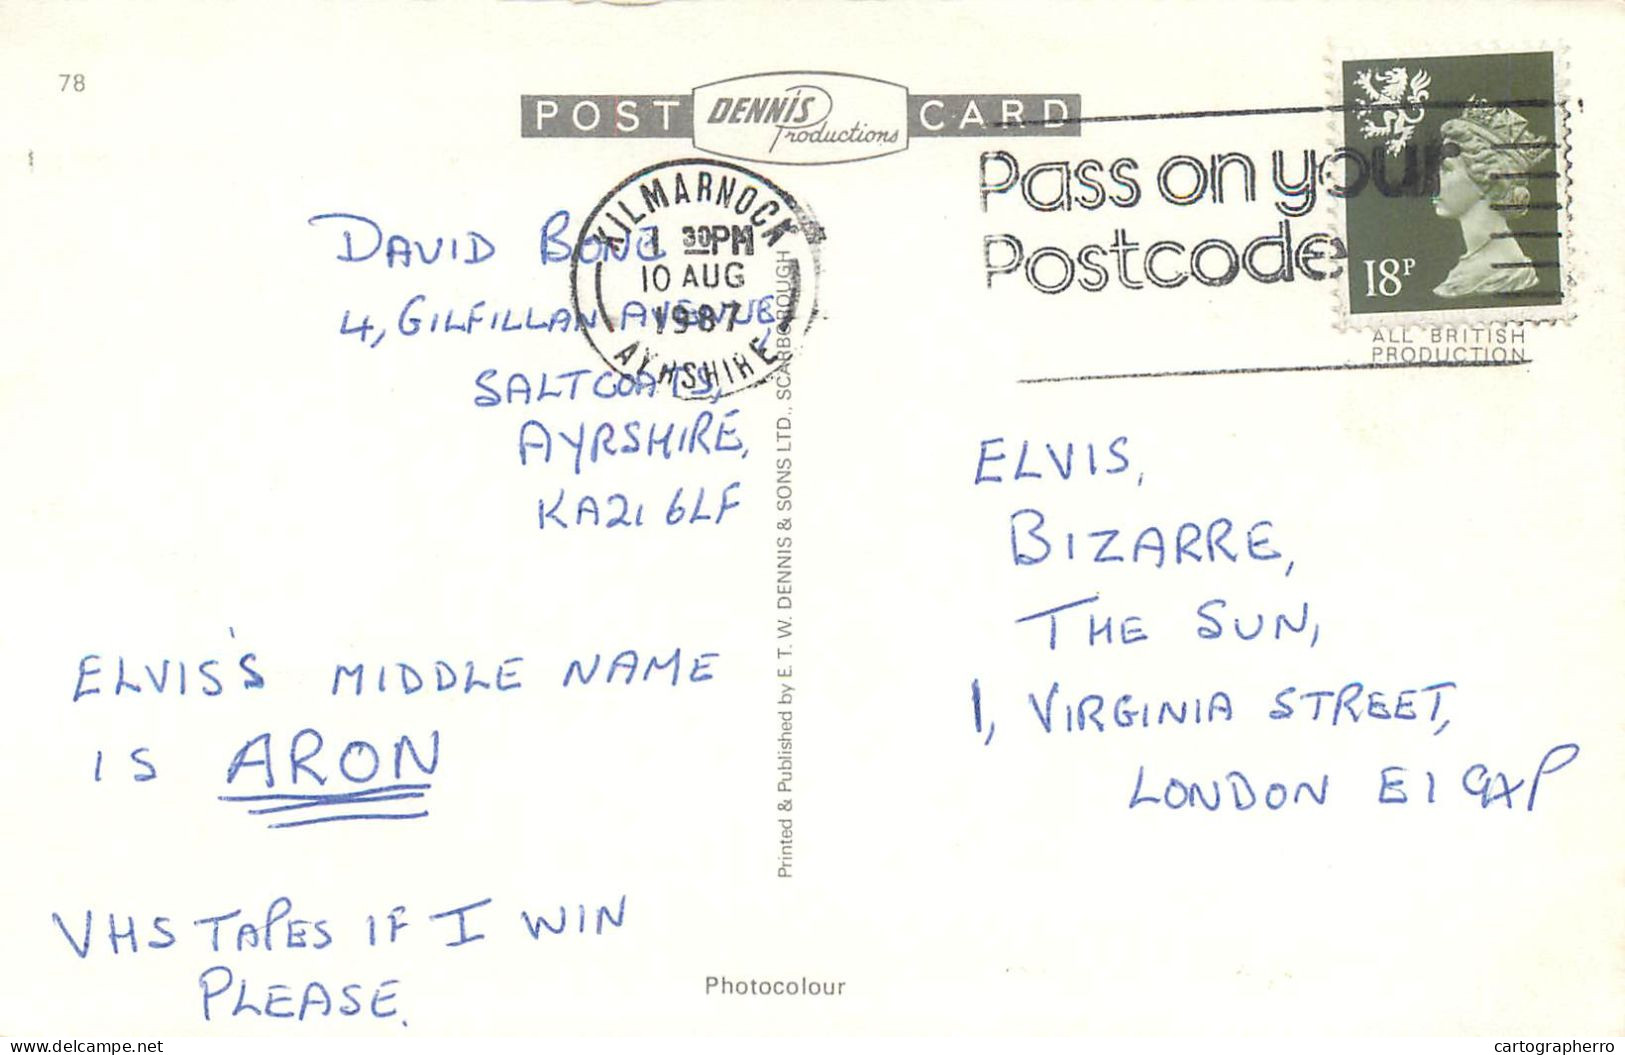 78
POST DENNIS Productions CARD
KILMARNOCK
1 30PM
10 AUG
1987
AYRSHIRE
Pass on your
Postcode
18P
ALL BRITISH
PRODUCTION
DAVID BONE
4, GILFILLAN AVENUE,
SALTCOATS,
AYRSHIRE,
KA21 6LF
ELVIS'S MIDDLE NAME
IS ARON
VHS TAPES IF I WIN
PLEASE.
Printed & Published by E. T. W. DENNIS & SONS LTD., SCARBOROUGH
ELVIS,
BIZARRE,
THE SUN,
1, VIRGINIA STREET,
LONDON E1 9XP
Photocolour
www.delcampe.net
cartographerro